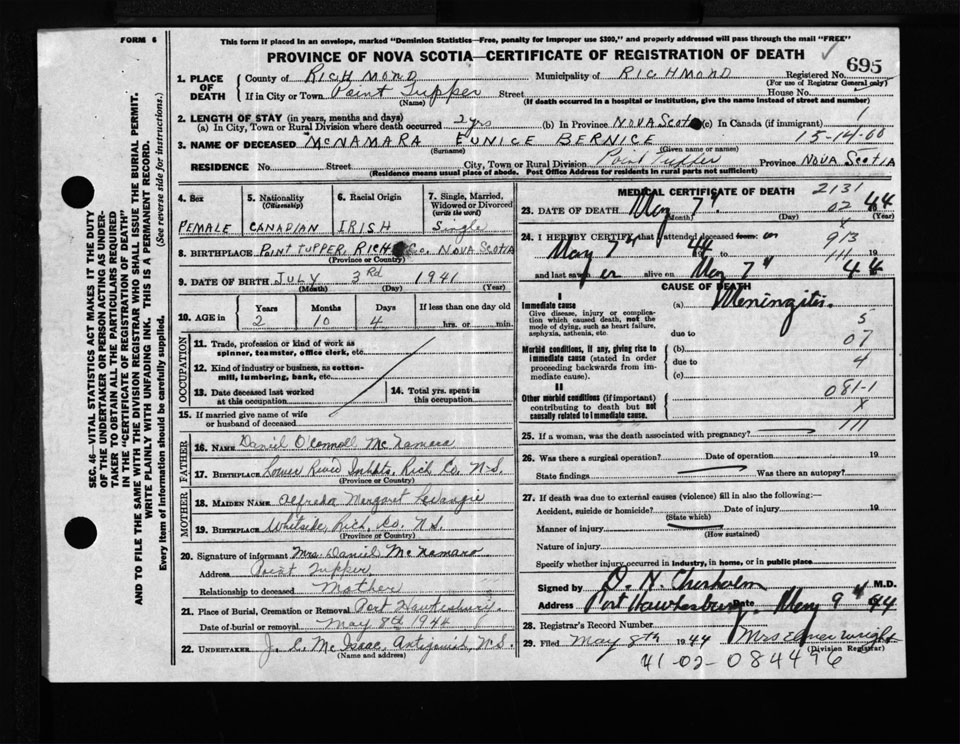 FORM 6
This form if placed in an envelope, marked "Dominion Statistics—Free, penalty for improper use $300," and properly addressed will pass through the mail "FREE"
PROVINCE OF NOVA SCOTIA—CERTIFICATE OF REGISTRATION OF DEATH
695
1. PLACE OF DEATH
County of RICHMOND Municipality of RICHMOND Registered No.
(For use of Registrar General only)
If in City or Town Point Tupper Street House No.
(Name) (If death occurred in a hospital or institution, give the name instead of street and number)
2. LENGTH OF STAY (in years, months and days)
(a) In City, Town or Rural Division where death occurred 2 yrs (b) In Province NOVA Scotia (c) In Canada (if immigrant) 1
3. NAME OF DECEASED McNAMARA EUNICE BERNICE 15-14-00
(Surname) (Given name or names)
RESIDENCE No. Street City, Town or Rural Division Point Tupper Province NOVA SCOTIA
(Residence means usual place of abode. Post Office Address for residents in rural parts not sufficient)
4. Sex
FEMALE
5. Nationality
(Citizenship)
CANADIAN
6. Racial Origin
IRISH
7. Single, Married, Widowed or Divorced
(write the word)
Single
8. BIRTHPLACE POINT TUPPER, RICH Co. NOVA SCOTIA
(Province or Country)
9. DATE OF BIRTH JULY 3rd 1941
(Month) (Day) (Year)
10. AGE in Years Months Days If less than one day old
2 10 4 hrs. or min.
OCCUPATION
11. Trade, profession or kind of work as spinner, teamster, office clerk, etc.
12. Kind of industry or business, as cotton-mill, lumbering, bank, etc.
13. Date deceased last worked at this occupation
14. Total yrs. spent in this occupation
15. If married give name of wife or husband of deceased
FATHER
16. NAME Daniel O'Connell McNamara
17. BIRTHPLACE Lower River Inhabts, Rich Co. N.S.
(Province or Country)
MOTHER
18. MAIDEN NAME Alfreda Margaret Levangie
19. BIRTHPLACE Whiteside, Rich. Co. N.S.
(Province or Country)
20. Signature of informant Mrs. Daniel McNamara
Address Point Tupper
Relationship to deceased Mother
21. Place of Burial, Cremation or Removal Port Hawkesbury
Date of burial or removal May 8th 1944
22. UNDERTAKER J. L. McIsaac, Antigonish, N.S.
(Name and address)
MEDICAL CERTIFICATE OF DEATH 2131
23. DATE OF DEATH May 7" 02 44
(Month) (Day) (Year)
x
24. I HEREBY CERTIFY that I attended deceased from 913
May 7" 44 to 111 19
and last saw er alive on May 7" 44
CAUSE OF DEATH
I
Immediate cause
Give disease, injury or complication which caused death, not the mode of dying, such as heart failure, asphyxia, asthenia, etc.
(a) Meningitis
5
due to
07
Morbid conditions, if any, giving rise to immediate cause (stated in order proceeding backwards from immediate cause).
(b)
due to 4
(c)
II
Other morbid conditions (if important) contributing to death but not causally related to immediate cause.
081-1
x
111
25. If a woman, was the death associated with pregnancy?
26. Was there a surgical operation? Date of operation 19
State findings Was there an autopsy?
27. If death was due to external causes (violence) fill in also the following:—
Accident, suicide or homicide? Date of injury 19
(State which)
Manner of injury
(How sustained)
Nature of injury
Specify whether injury occurred in industry, in home, or in public place
Signed by D. N. Chisholm M.D.
Address Port Hawkesbury Date May 9" 44
28. Registrar's Record Number
29. Filed May 8th 1944 Mrs Elmer Wright
(Division Registrar)
41-02-084496
SEC. 46—VITAL STATISTICS ACT MAKES IT THE DUTY
OF THE UNDERTAKER OR PERSON ACTING AS UNDER-
TAKER TO OBTAIN ALL THE PARTICULARS REQUIRED
IN THE "CERTIFICATE OF REGISTRATION OF DEATH"
AND TO FILE THE SAME WITH THE DIVISION REGISTRAR WHO SHALL ISSUE THE BURIAL PERMIT.
WRITE PLAINLY WITH UNFADING INK. THIS IS A PERMANENT RECORD.
Every item of information should be carefully supplied. (See reverse side for instructions.)